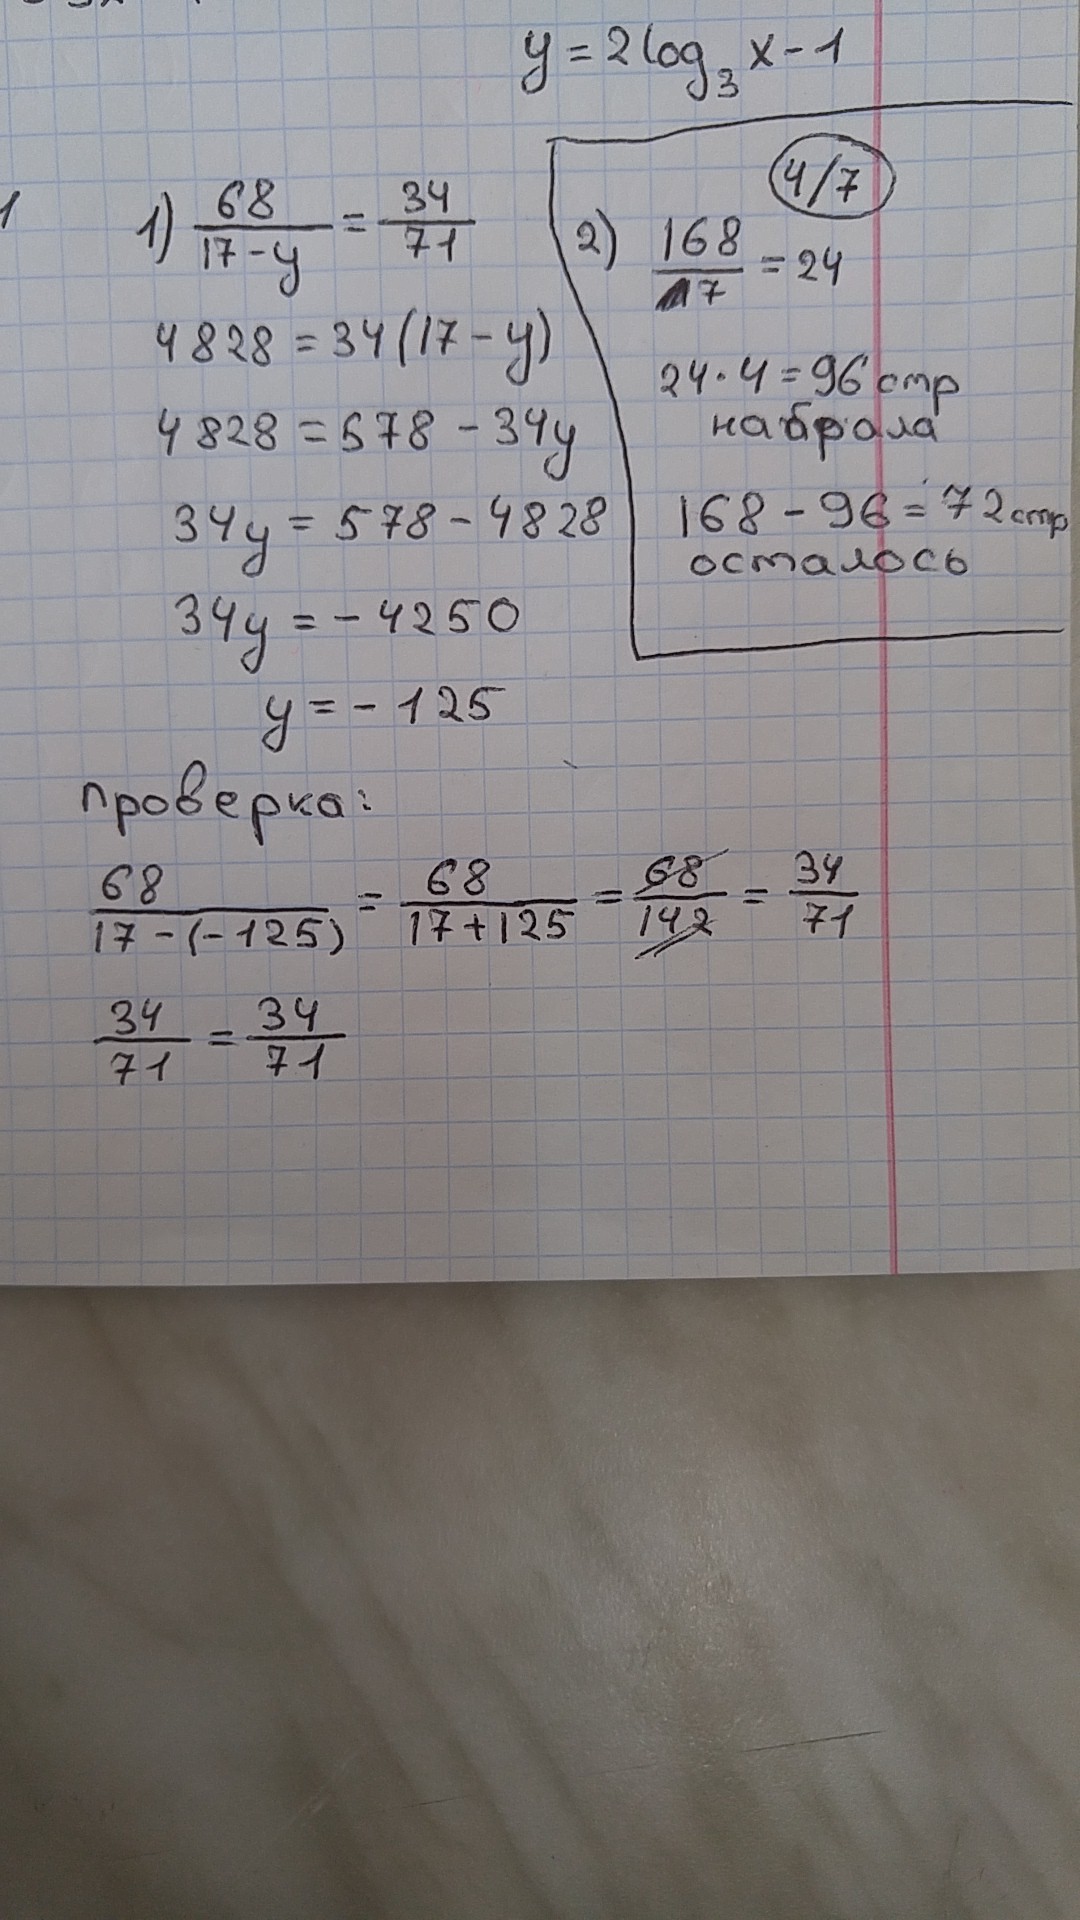 y = 2 log₃ x - 1
1) 68/(17-y) = 34/71
4828 = 34(17-y)
4828 = 578 - 34y
34y = 578 - 4828
34y = -4250
y = -125
проверка:
68/(17-(-125)) = 68/(17+125) = 68/142 = 34/71
34/71 = 34/71
4/7
2) 168/7 = 24
24·4 = 96 стр
набрала
168 - 96 = 72 стр
осталось